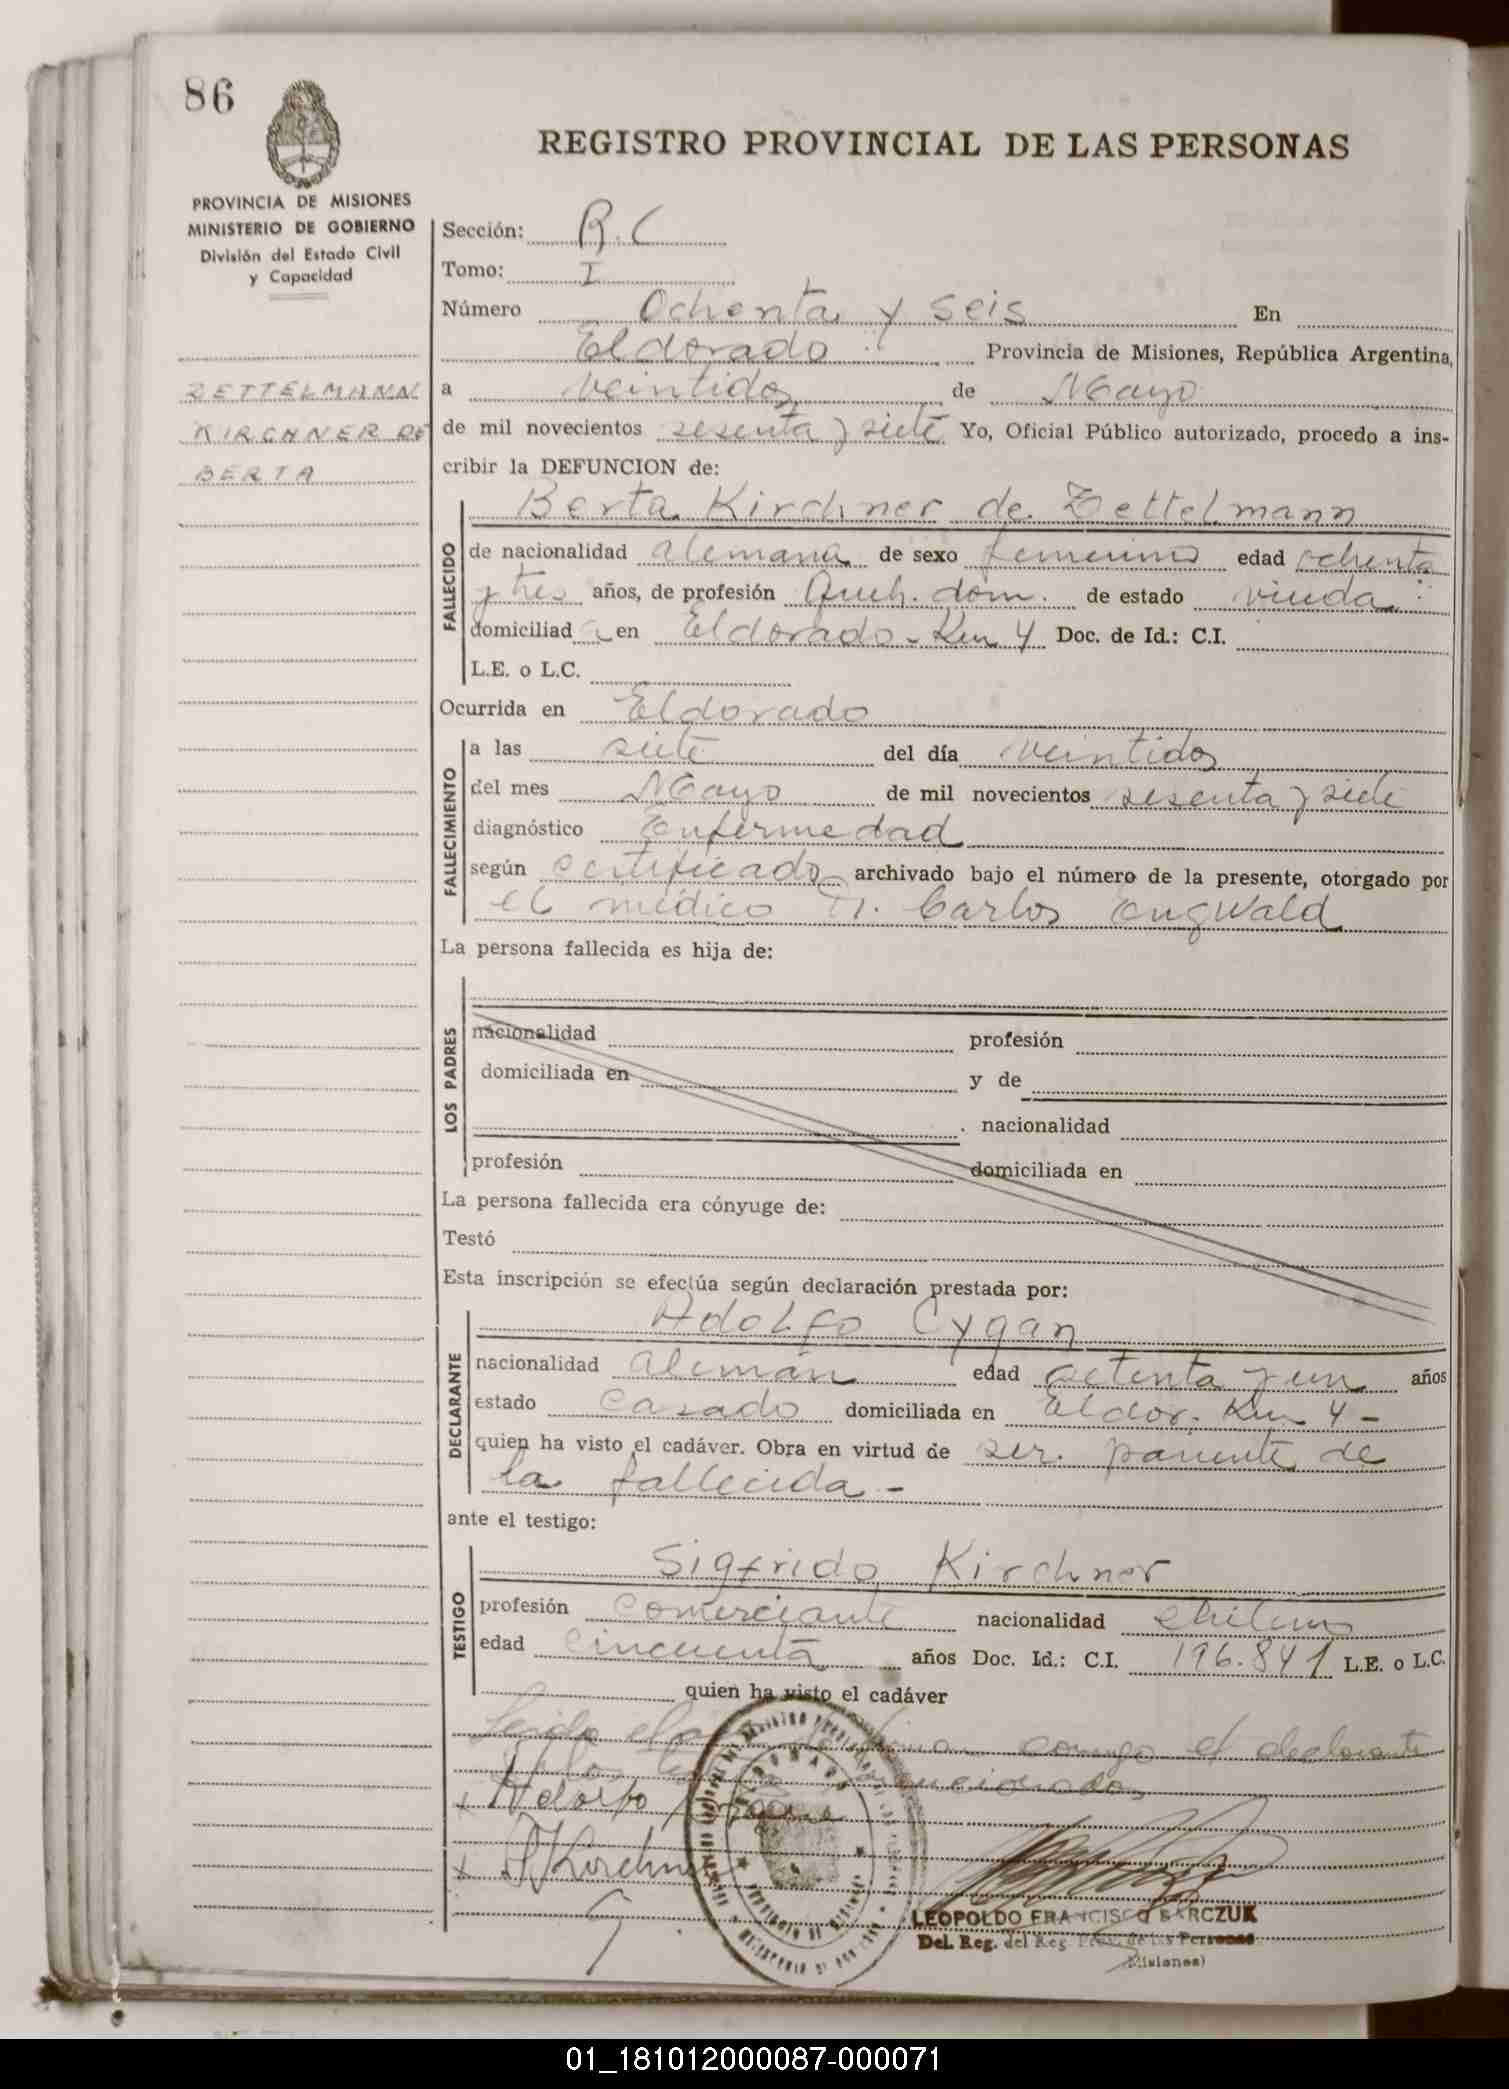 86
REGISTRO PROVINCIAL DE LAS PERSONAS
PROVINCIA DE MISIONES
MINISTERIO DE GOBIERNO
División del Estado Civil
y Capacidad
ZETTELMANN
KIRCHNER DE
BERTA
Sección: R.C
Tomo: I
Número Ochenta y seis En
Eldorado Provincia de Misiones, República Argentina,
a veintidos de Mayo
de mil novecientos sesenta y siete Yo, Oficial Público autorizado, procedo a ins-
cribir la DEFUNCION de:
FALLECIDO
Berta Kirchner de Zettelmann
de nacionalidad alemana de sexo femenino edad ochenta
y tres años, de profesión Queh. dom. de estado viuda
domiciliad a en Eldorado - Km 4 Doc. de Id.: C.I.
L.E. o L.C.
Ocurrida en Eldorado
FALLECIMIENTO
a las siete del día veintidos
del mes Mayo de mil novecientos sesenta y siete
diagnóstico Enfermedad
según certificado archivado bajo el número de la presente, otorgado por
el médico Dr. Carlos Engwald
La persona fallecida es hija de:
LOS PADRES
nacionalidad profesión
domiciliada en y de
nacionalidad
profesión domiciliada en
La persona fallecida era cónyuge de:
Testó
Esta inscripción se efectúa según declaración prestada por:
DECLARANTE
Adolfo Cygan
nacionalidad alemán edad setenta y un años
estado casado domiciliada en Eldor. Km 4 -
quien ha visto el cadáver. Obra en virtud de ser pariente de
la fallecida -
ante el testigo:
TESTIGO
Sigfrido Kirchner
profesión comerciante nacionalidad chileno
edad cincuenta años Doc. Id.: C.I. 196.841 L.E. o L.C.
quien ha visto el cadáver
Leida el acta conmigo el declarante
mencionado
Adolfo
Kirchner
LEOPOLDO FRANCISCO BARCZUK
Del. Reg. del Reg. Prov. de las Personas
(Misiones)
01_181012000087-000071